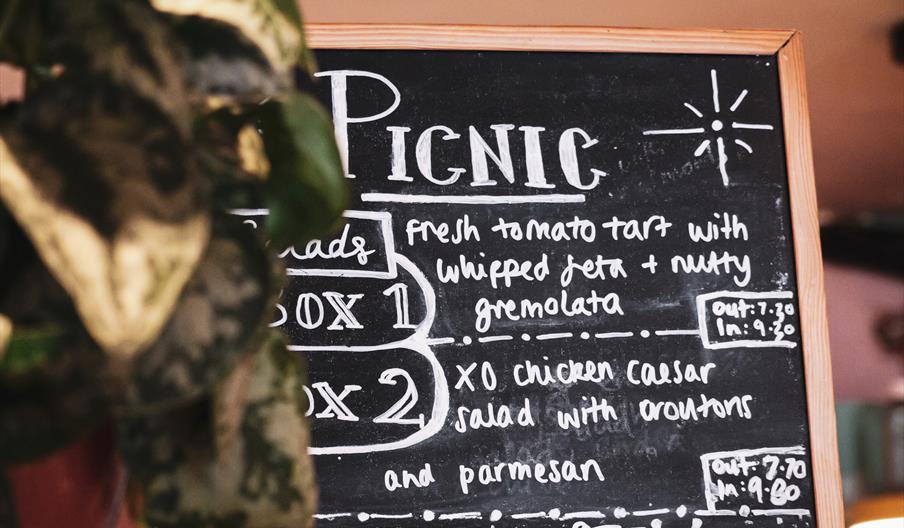 PICNIC
fresh tomato tart with
whipped feta + nutty
gremolata
BOX 1
Out: 7.30
In: 9.20
XO chicken caesar
salad with croutons
2
and parmesan
Out: 7.70
In: 9.80